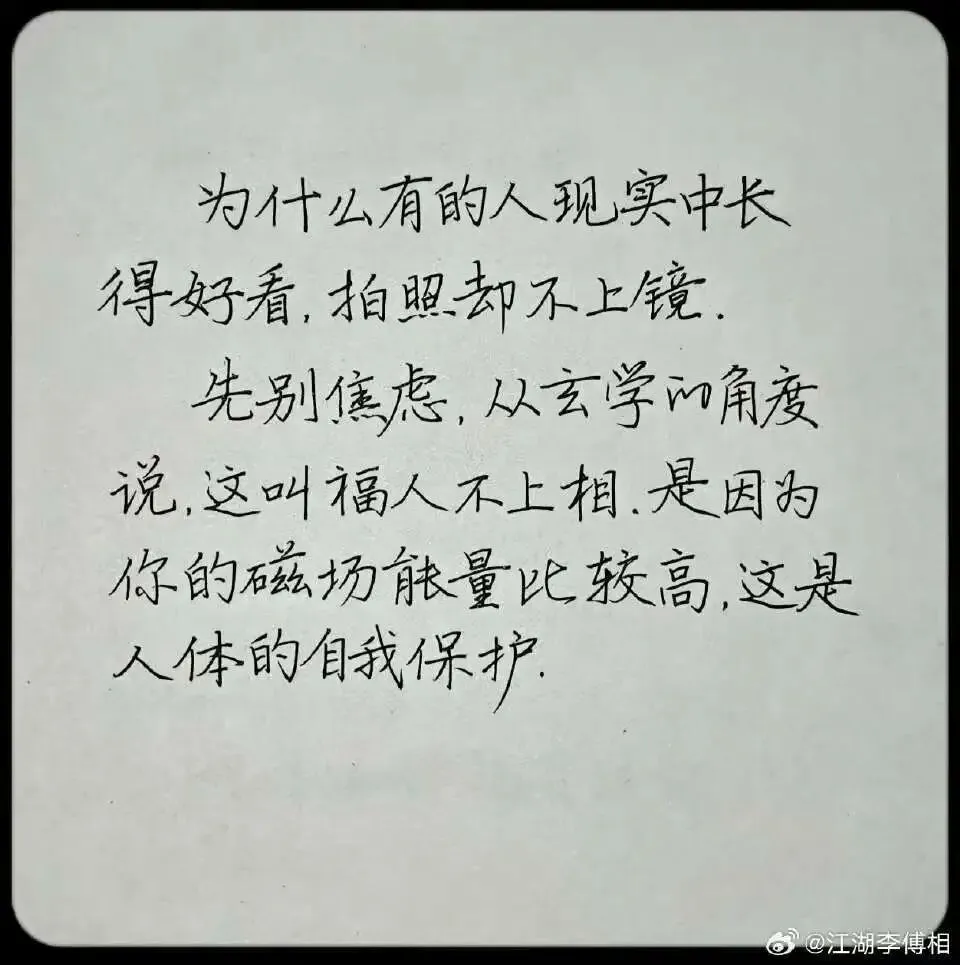 为什么有的人现实中长
得好看,拍照却不上镜.
先别焦虑,从玄学的角度
说,这叫福人不上相.是因为
你的磁场能量比较高,这是
人体的自我保护.
@江湖李傅相